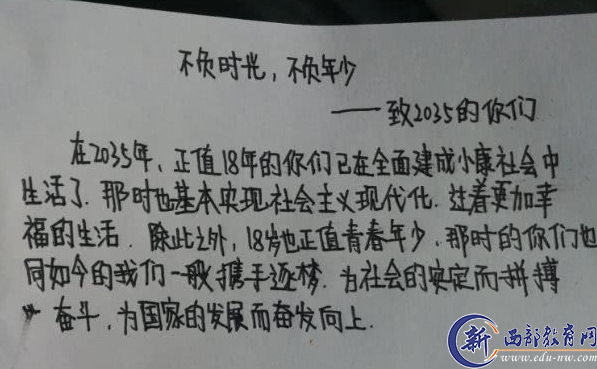 不负时光，不负年少
——致2035的你们
在2035年，正值18年的你们已在全面建成小康社会中
生活了.那时也基本实现社会主义现代化.过着更加幸
福的生活.除此之外，18岁也正值青春年少，那时的你们也
同如今的我们一般携手逐梦.为社会的安定而拼搏
奋斗，为国家的发展而奋发向上.
新 西部教育网
www.edu-nw.com